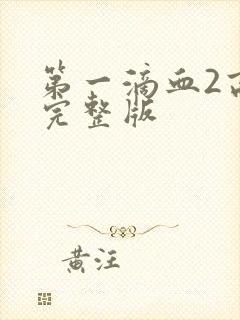 第一滴血2
完整版
黄汪